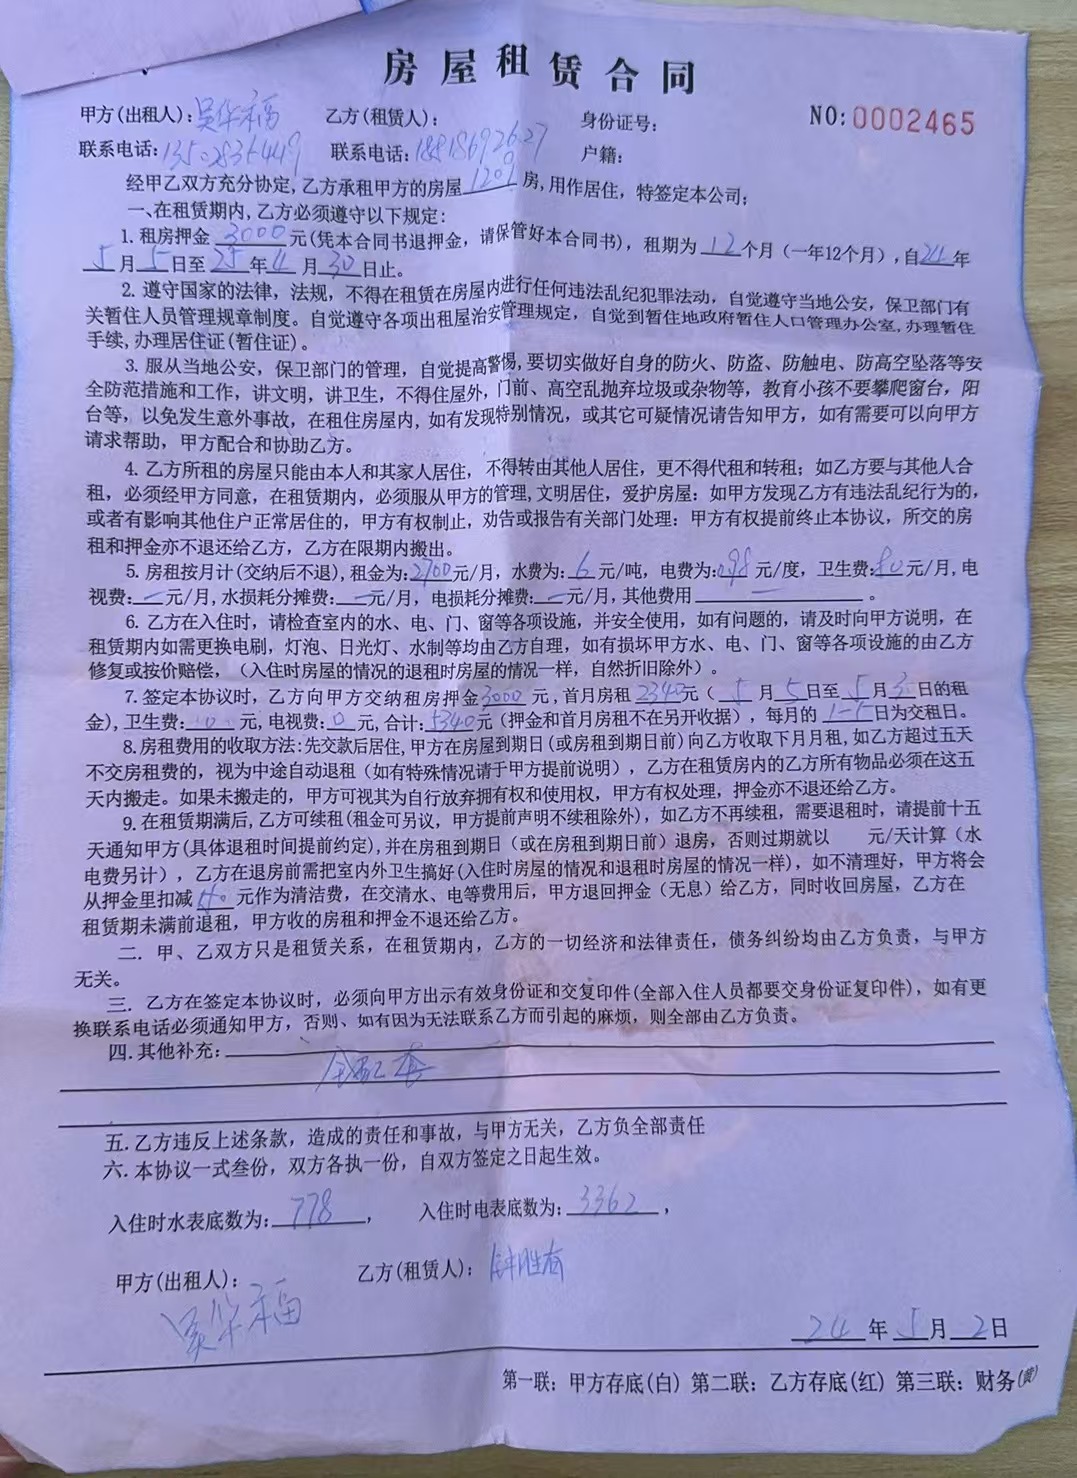 房屋租赁合同
甲方(出租人)：吴华福 乙方(租赁人)： 身份证号： NO:0002465
联系电话: 联系电话: 户籍：
经甲乙双方充分协定,乙方承租甲方的房屋1209房,用作居住，特签定本公司；
一、在租赁期内,乙方必须遵守以下规定：
1.租房押金3000元(凭本合同书退押金，请保管好本合同书)，租期为12个月(一年12个月),自24年
5月5日至25年4月30日止。
2.遵守国家的法律，法规，不得在租赁在房屋内进行任何违法乱纪犯罪法动，自觉遵守当地公安，保卫部门有
关暂住人员管理规章制度。自觉遵守各项出租屋治安管理规定，自觉到暂住地政府暂住人口管理办公室,办理暂住
手续,办理居住证(暂住证)。
3.服从当地公安，保卫部门的管理，自觉提高警惕,要切实做好自身的防火、防盗、防触电、防高空坠落等安
全防范措施和工作，讲文明，讲卫生，不得住屋外,门前、高空乱抛弃垃圾或杂物等，教育小孩不要攀爬窗台，阳
台等，以免发生意外事故，在租住房屋内,如有发现特别情况，或其它可疑情况请告知甲方，如有需要可以向甲方
请求帮助，甲方配合和协助乙方。
4.乙方所租的房屋只能由本人和其家人居住，不得转由其他人居住，更不得代租和转租；如乙方要与其他人合
租，必须经甲方同意，在租赁期内，必须服从甲方的管理,文明居住，爱护房屋：如甲方发现乙方有违法乱纪行为的，
或者有影响其他住户正常居住的，甲方有权制止，劝告或报告有关部门处理：甲方有权提前终止本协议，所交的房
租和押金亦不退还给乙方，乙方在限期内搬出。
5.房租按月计(交纳后不退),租金为:2700元/月，水费为:6元/吨，电费为:0.98元/度，卫生费:80元/月,电
视费:—元/月,水损耗分摊费:—元/月，电损耗分摊费:—元/月,其他费用—。
6.乙方在入住时，请检查室内的水、电、门、窗等各项设施，并安全使用，如有问题的，请及时向甲方说明，在
租赁期内如需更换电刷，灯泡、日光灯、水制等均由乙方自理，如有损坏甲方水、电、门、窗等各项设施的由乙方
修复或按价赔偿，(入住时房屋的情况的退租时房屋的情况一样，自然折旧除外)。
7.签定本协议时，乙方向甲方交纳租房押金3000元,首月房租2340元(5月5日至5月日的租
金),卫生费:0元,电视费:0元,合计:5340元(押金和首月房租不在另开收据)，每月的1-5日为交租日。
8.房租费用的收取方法:先交款后居住,甲方在房屋到期日(或房租到期日前)向乙方收取下月月租,如乙方超过五天
不交房租费的，视为中途自动退租(如有特殊情况请于甲方提前说明)，乙方在租赁房内的乙方所有物品必须在这五
天内搬走。如果未搬走的，甲方可视其为自行放弃拥有权和使用权，甲方有权处理，押金亦不退还给乙方。
9.在租赁期满后,乙方可续租(租金可另议，甲方提前声明不续租除外)，如乙方不再续租，需要退租时，请提前十五
天通知甲方(具体退租时间提前约定),并在房租到期日(或在房租到期日前)退房，否则过期就以 元/天计算(水
电费另计)，乙方在退房前需把室内外卫生搞好(入住时房屋的情况和退租时房屋的情况一样)，如不清理好，甲方将会
从押金里扣减元作为清洁费，在交清水、电等费用后，甲方退回押金(无息)给乙方，同时收回房屋，乙方在
租赁期未满前退租，甲方收的房租和押金不退还给乙方。
二. 甲、乙双方只是租赁关系，在租赁期内，乙方的一切经济和法律责任，债务纠纷均由乙方负责，与甲方
无关。
三. 乙方在签定本协议时，必须向甲方出示有效身份证和交复印件(全部入住人员都要交身份证复印件)，如有更
换联系电话必须通知甲方，否则、如有因为无法联系乙方而引起的麻烦，则全部由乙方负责。
四.其他补充：
五.乙方违反上述条款，造成的责任和事故，与甲方无关，乙方负全部责任
六.本协议一式叁份，双方各执一份，自双方签定之日起生效。
入住时水表底数为:778， 入住时电表底数为:3362，
甲方(出租人)： 乙方(租赁人)：钟胜有
吴华福
24年5月2日
第一联：甲方存底(白) 第二联：乙方存底(红) 第三联：财务(黄)